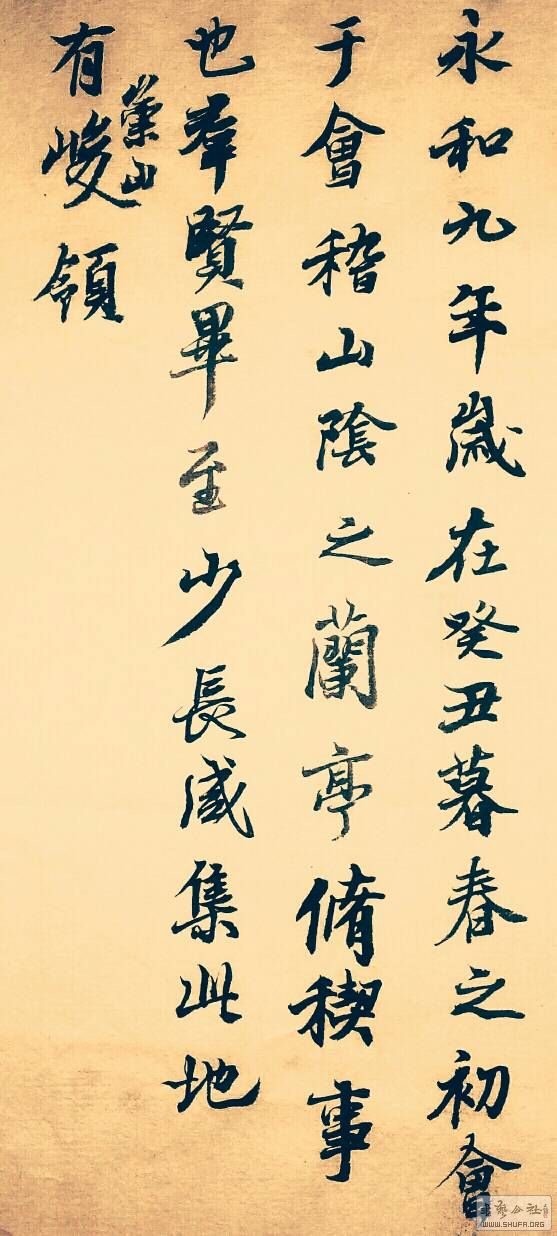 永和九年歲在癸丑暮春之初會
于會稽山陰之蘭亭脩稧事
也羣賢畢至少長咸集此地
有崇山峻領
WWW.SHUFA.ORG